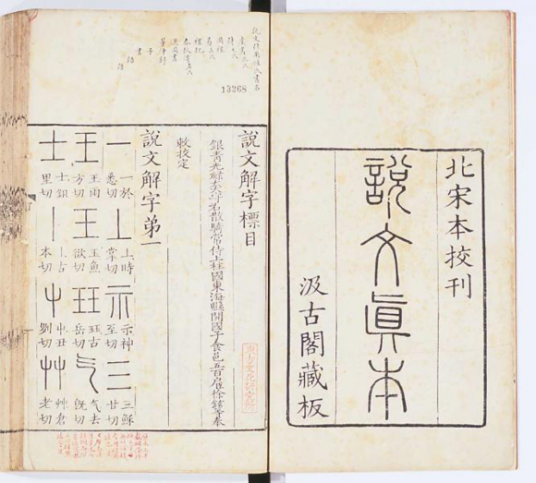 北宋本挍刊
說文眞本
汲古閣藏板
13268
說文解字標目
銀青光祿大夫守右散騎常侍上柱國東海縣開國子食邑五百戶臣徐鉉等奉
敕挍定
說文解字第一
一 一於悉切 丄 丄時掌切 示 示神至切 三 三穌甘切
王 王雨方切 王 玉魚欲切 玨 玨古岳切 气 气去旣切
士 士鉏里切 丨 丨古本切 屮 屮丑劉切 艸 艸倉老切